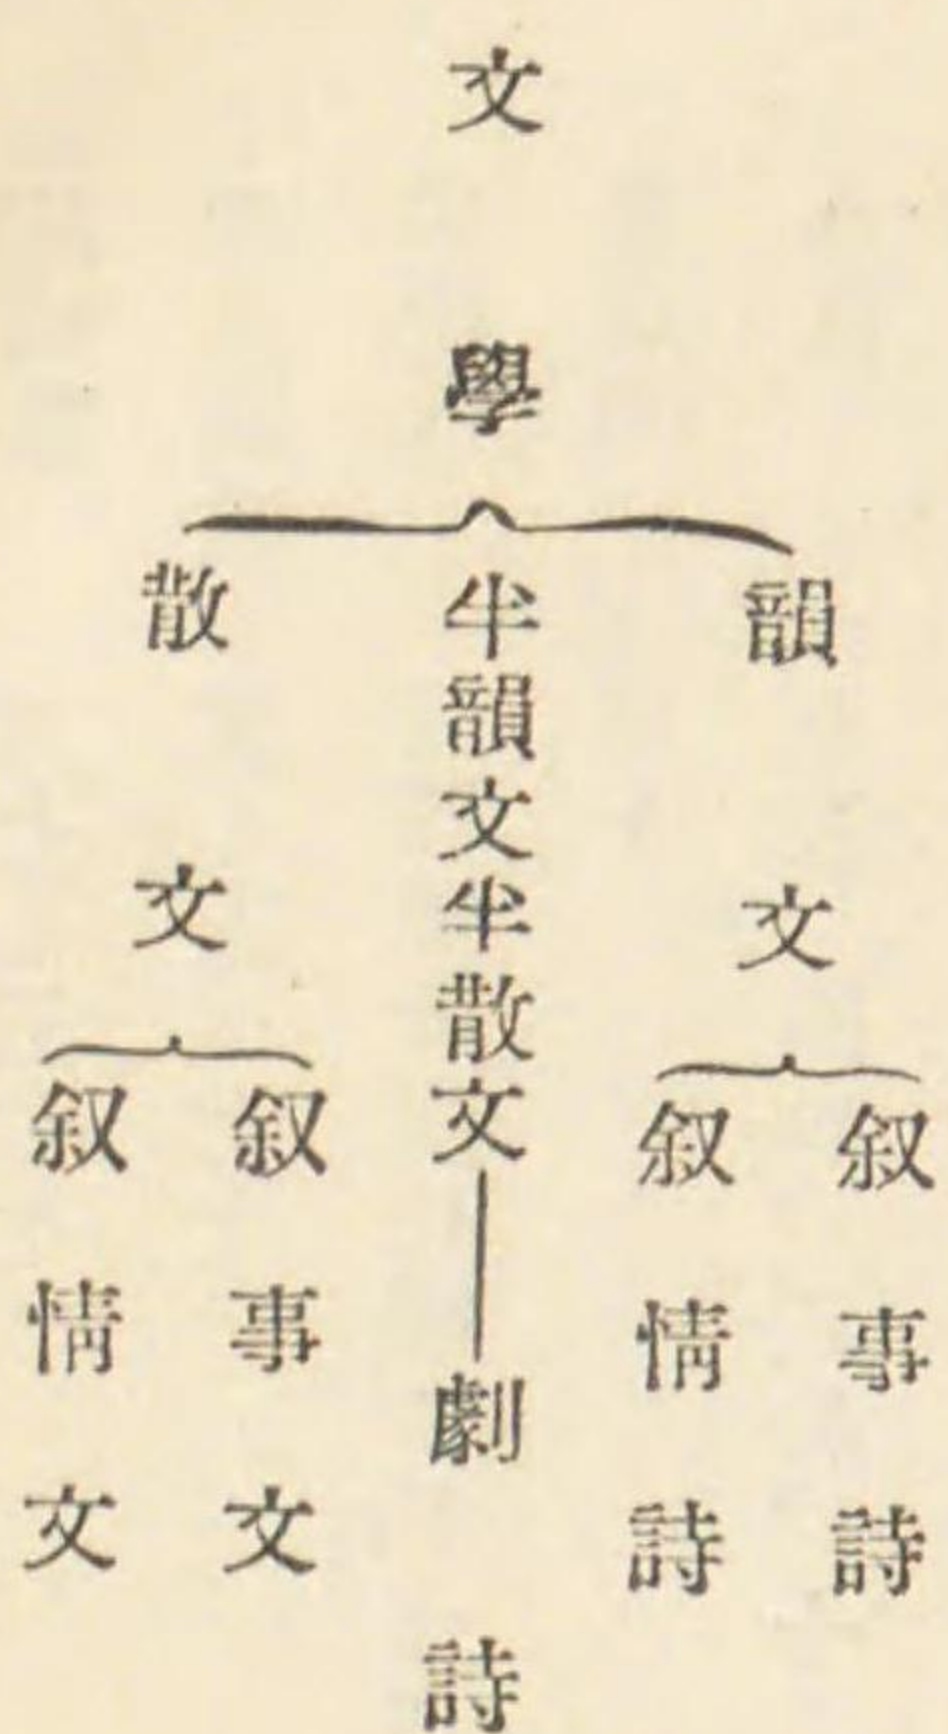 文學
韻文
叙事詩
叙情詩
半韻文半散文
劇詩
散文
叙事文
叙情文